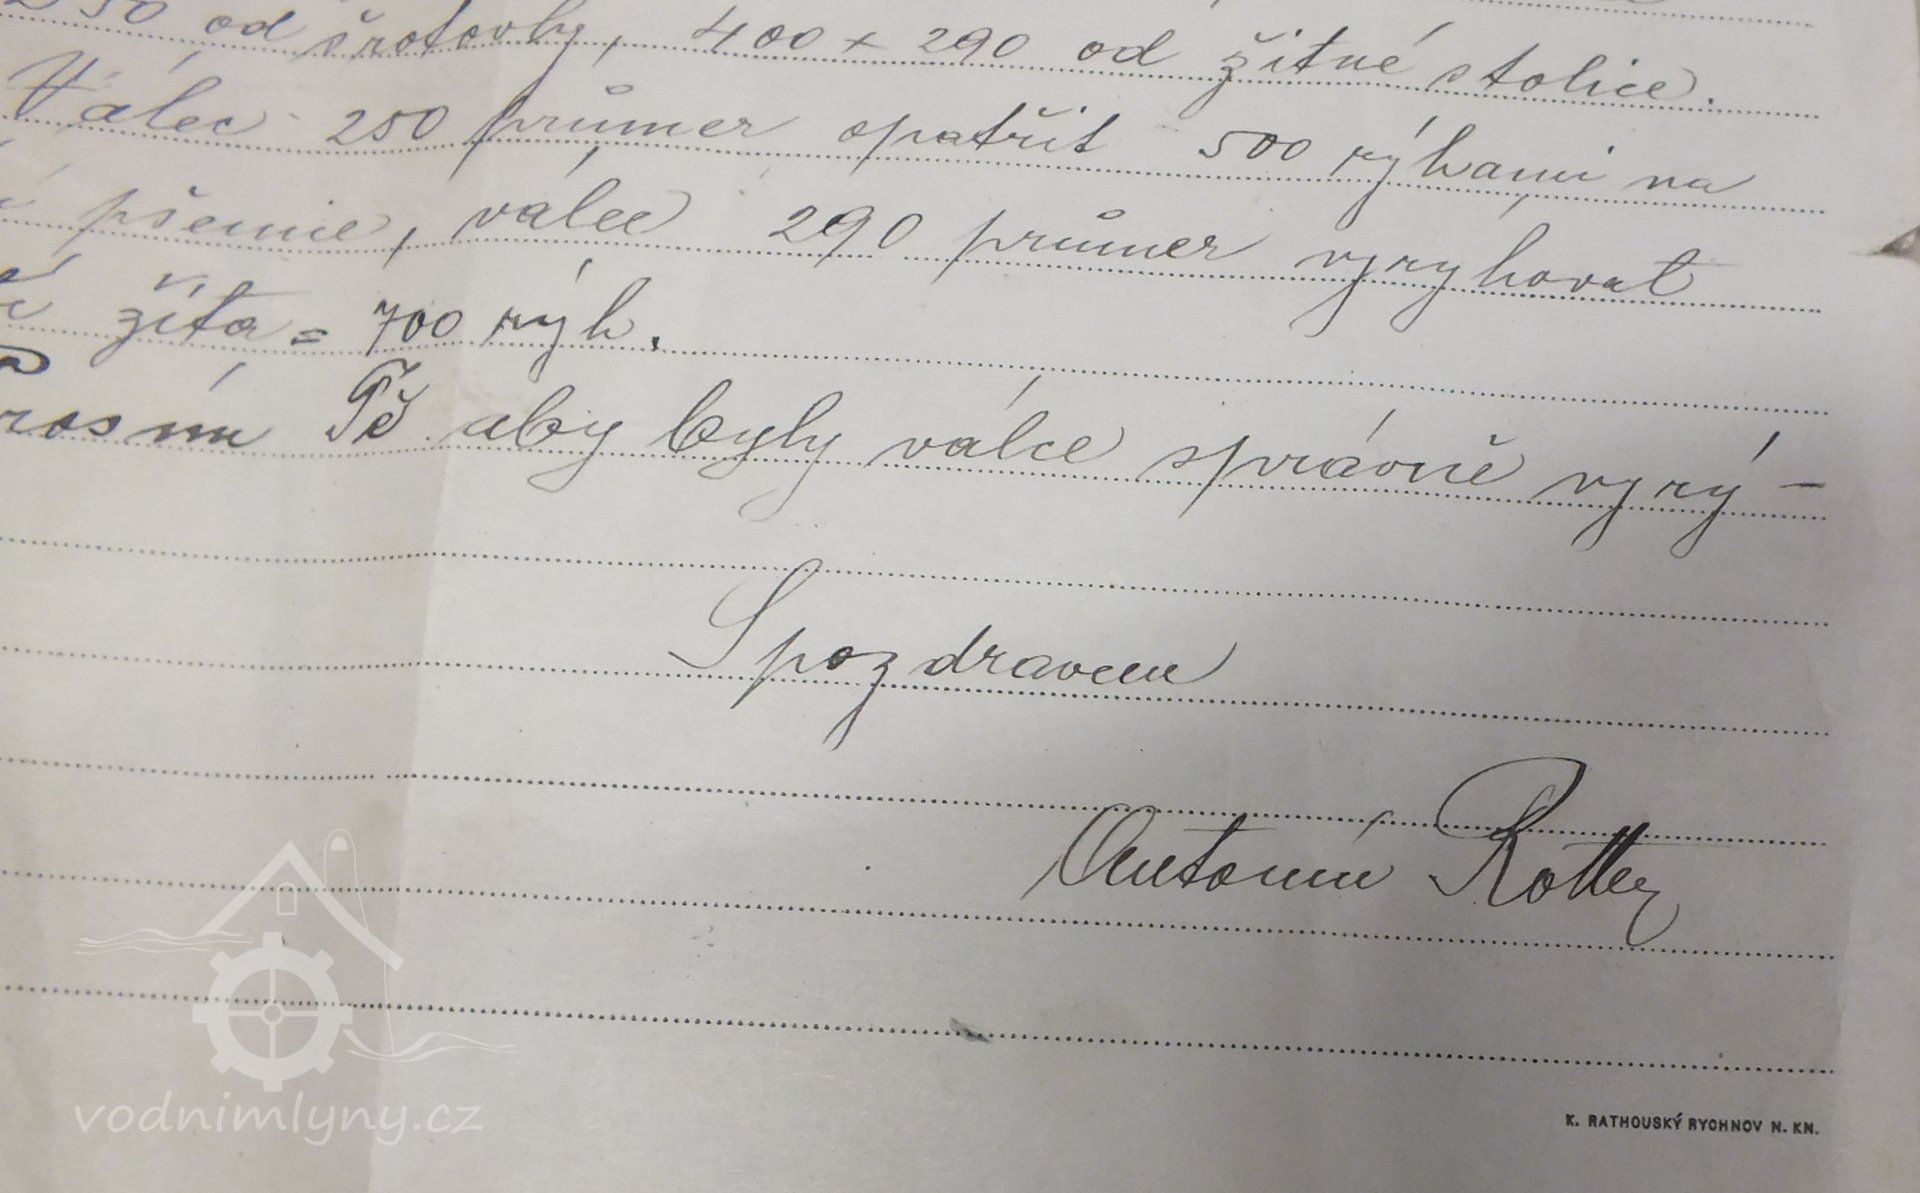 250 od šrotovky, 400 x 290 od žitné stolice.
Válec 250 průmer spatřit 500 rýhami na
pšenic, válec 290 průmer vyryhovat
žíta = 700 rýh.
aby byly válce správně vyrý-
S pozdravem
Antonín Rotter
K. RATHOUSKÝ RYCHNOV N. KN.
vodnimlyny.cz